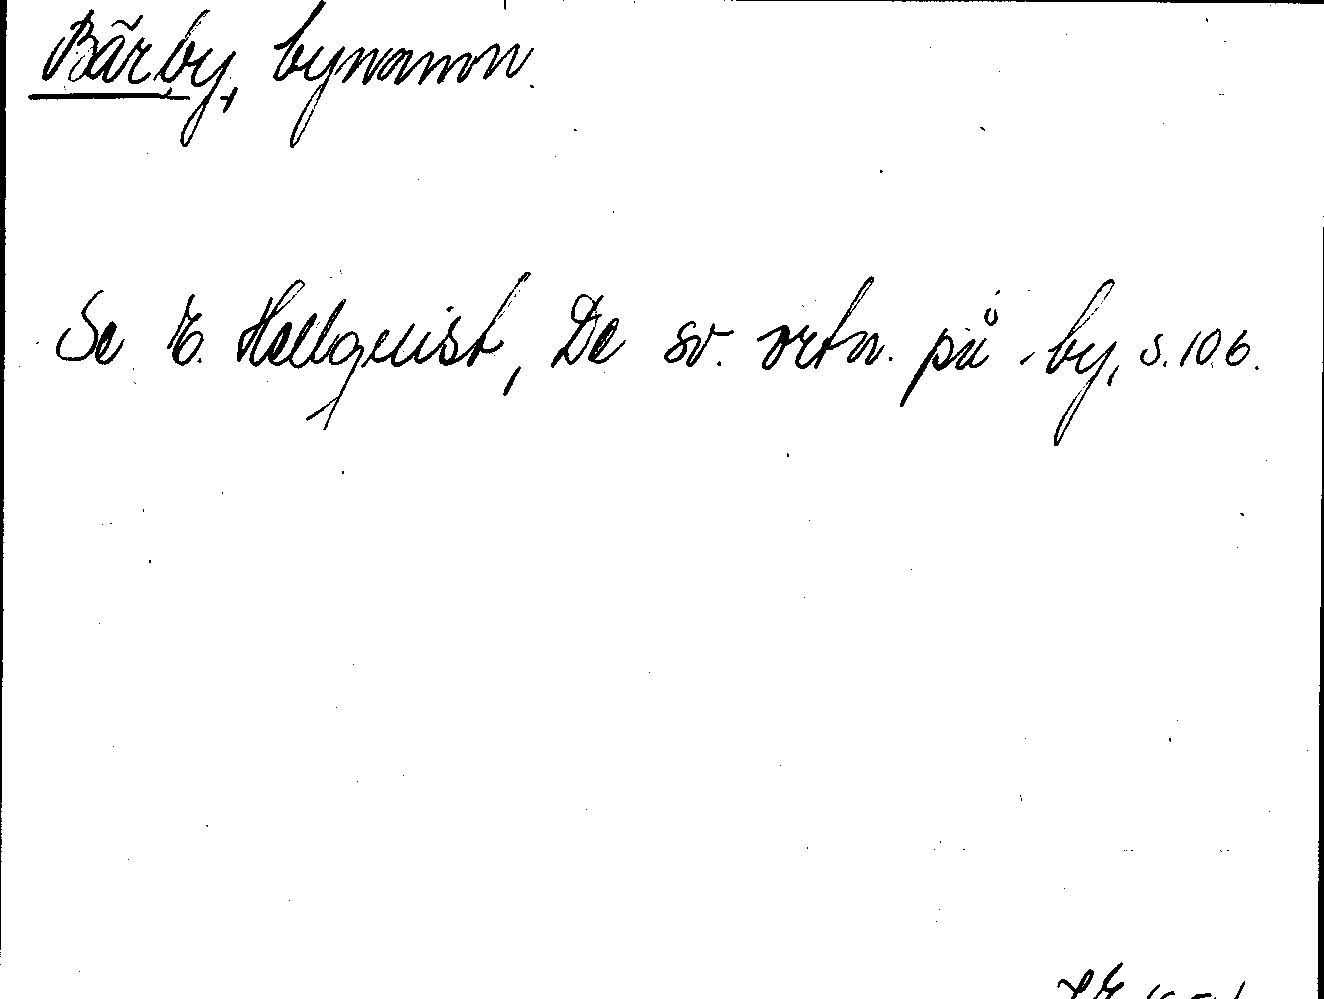 Bärby, bynamn.
Se E. Hellquist, De sv. ortn. på -by, s. 106.